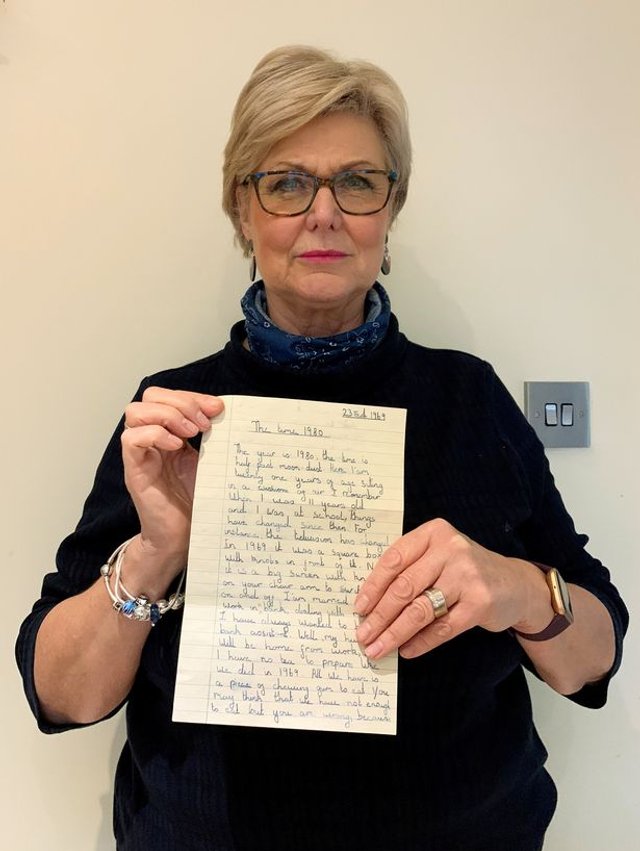 23rd 1969
The time 1980
The year is 1980, the time is
half past moon dust. Here I am
twenty one years of age sitting
in a cushion of air I remember
When I was 11 years old
and I was at school, things
have changed since then. For
instance, the television has changed
In 1969 it was a square box
with knobs in front of it N
it is a big screen with kno
on your chair arm to turn
on and off I am married
work in bank dealing with m
I have always wanted to
bank assist t. Well, my hu
will be home from work,
I have no tea to prepare like
we did in 1969. All we have is
a piece of chewing gum to eat You
may think that we have not enough
to eat but you are wrong, because